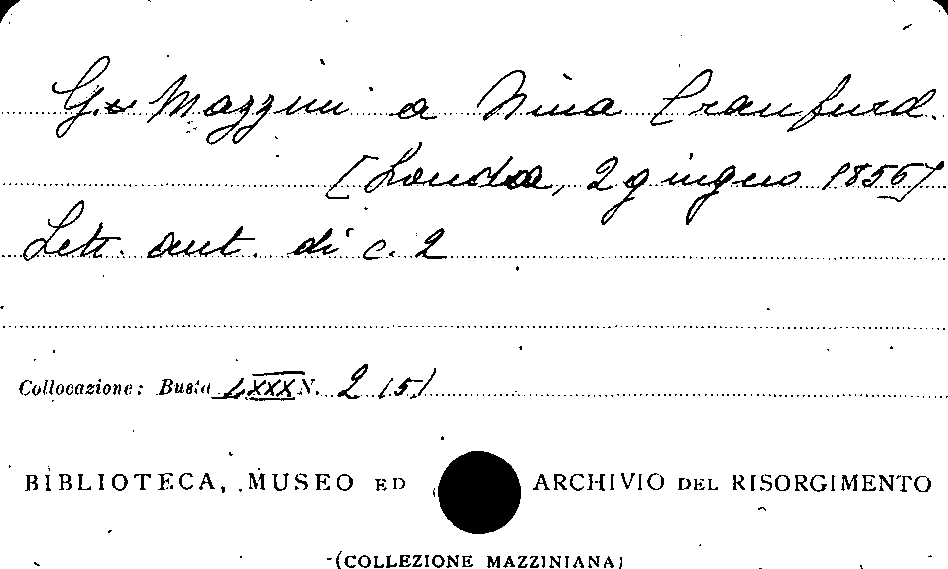 G. Mazzini a Nina Cranfurd.
[Londra, 2 giugno 1856]
Lett. aut. di c. 2
Collocazione: Busta LXXX N. 2 (5)
BIBLIOTECA, MUSEO ED ARCHIVIO DEL RISORGIMENTO
(COLLEZIONE MAZZINIANA)